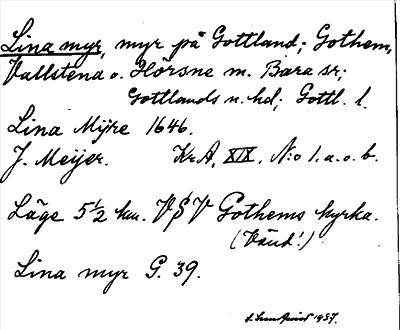 Lina myr, myr på Gottland; Gothem,
Vallstena o. Hörsne m. Bara sr;
Gottlands n. hd; Gottl. l.
Lina Mÿre 1646.
J. Meijer. Kr.A, XIX, N:o 1.a.o.b.
Läge 5½ km. VSV Gothems kyrka.
(Vänd!)
Lina myr G. 39.
1937.